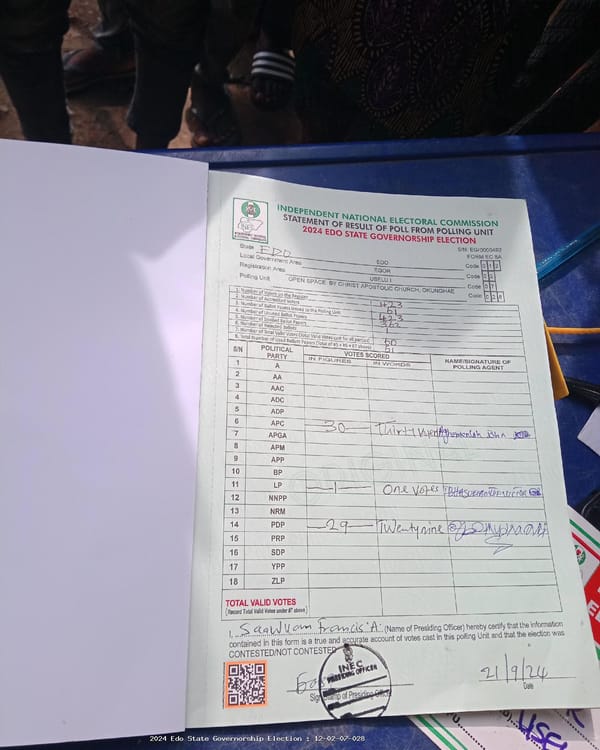 INDEPENDENT NATIONAL ELECTORAL COMMISSION
STATEMENT OF RESULT OF POLL FROM POLLING UNIT
2024 EDO STATE GOVERNORSHIP ELECTION
FORM EC 8A
State EDO
Local Government Area EDO Code 0 1 2
Registration Area EGOR Code 0 2
Polling Unit USELU I Code 0 7
OPEN SPACE BY CHRIST APOSTOLIC CHURCH, OKUNGHAE Code 0 2 8
1. Number of Voters on the Register 423
2. Number of Accredited Voters 61
3. Number of Ballot Papers Issued to the Polling Unit 423
4. Number of Unused Ballot Papers
5. Number of Spoiled Ballot Papers
6. Number of Rejected Ballots 1
7. Number of Total Valid Votes (Total Valid Votes cast for all parties) 60
8. Total Number of Used Ballot Papers (Total of #5 + #6 + #7 above) 61
S/N POLITICAL PARTY VOTES SCORED IN FIGURES IN WORDS NAME/SIGNATURE OF POLLING AGENT
1 A
2 AA
3 AAC
4 ADC
5 ADP
6 APC 30 Thirty votes
7 APGA
8 APM
9 APP
10 BP
11 LP 1 One votes
12 NNPP
13 NRM
14 PDP 29 Twenty nine
15 PRP
16 SDP
17 YPP
18 ZLP
TOTAL VALID VOTES
(Record Total Valid Votes under #7 above)
I, Francis A. (Name of Presiding Officer) hereby certify that the information
contained in this form is a true and accurate account of votes cast in this polling Unit and that the election was
CONTESTED/NOT CONTESTED
INEC
PRESIDING OFFICER
21/9/24
Sign/Stamp of Presiding Officer Date
2024 Edo State Governorship Election : 12-02-07-028